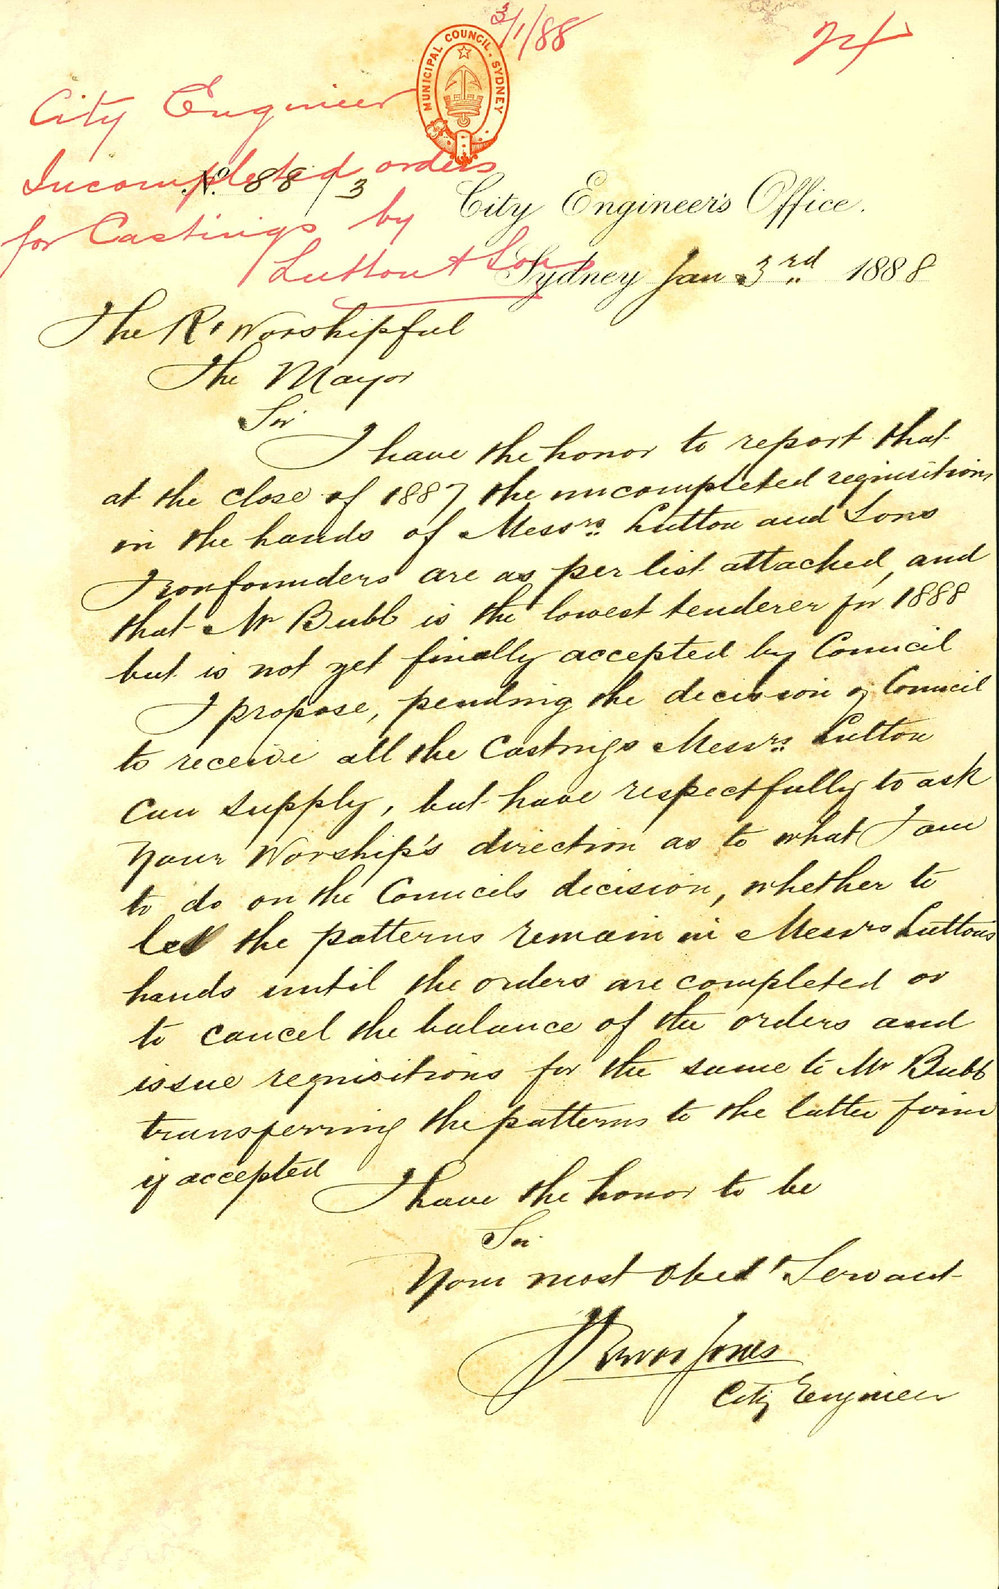 3/1/88
24
MUNICIPAL COUNCIL. SYDNEY
City Engineer
Incompleted orders
for Castings by
Lutton & Son
No. 88/3
City Engineer's Office.
Sydney Jan 3rd 1888
The Rt Worshipful
The Mayor
Sir
I have the honor to report that
at the close of 1887 the uncompleted requisitions
in the hands of Messrs Lutton and Sons
Ironfounders are as per list attached, and
that Mr Bubb is the lowest tenderer for 1888
but is not yet finally accepted by Council
I propose, pending the decision of Council
to receive all the Castings Messrs Lutton
can supply, but have respectfully to ask
Your Worship's direction as to what I am
to do on the Councils decision, whether to
let the patterns remain in Messrs Luttons
hands until the orders are completed or
to cancel the balance of the orders and
issue requisitions for the same to Mr Bubb
transferring the patterns to the latter firm
if accepted
I have the honor to be
Sir
Your most Obedt Servant
Trevor Jones
City Engineer